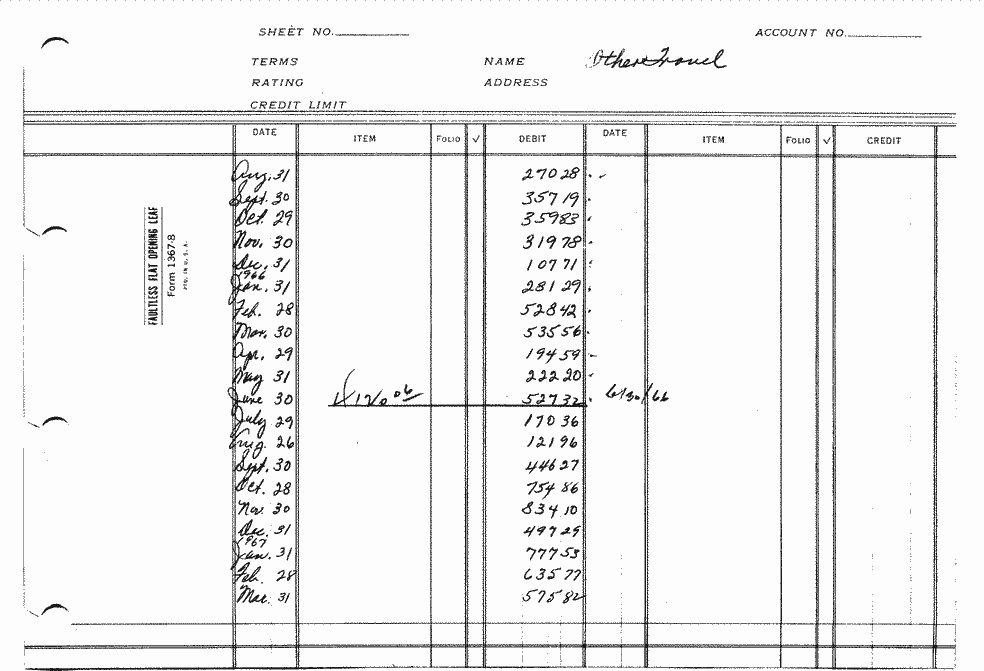 SHEET NO. ACCOUNT NO.
TERMS NAME Other Travel
RATING ADDRESS
CREDIT LIMIT
DATE ITEM FOLIO √ DEBIT DATE ITEM FOLIO √ CREDIT
Aug. 31 270 28
Sept. 30 357 19
Oct. 29 359 83
Nov. 30 319 78
Dec. 31 107 71
1966
Jan. 31 281 29
Feb. 28 528 42
Mar. 30 535 56
Apr. 29 194 59
May 31 222 20
June 30 4120.06 527 32 6/30/66
July 29 170 36
Aug. 26 121 96
Sept. 30 446 27
Oct. 28 754 86
Nov. 30 834 10
Dec. 31 497 29
1967
Jan. 31 777 53
Feb. 28 635 77
Mar. 31 575 82
FAULTLESS FLAT OPENING LEAF
Form 1367-8